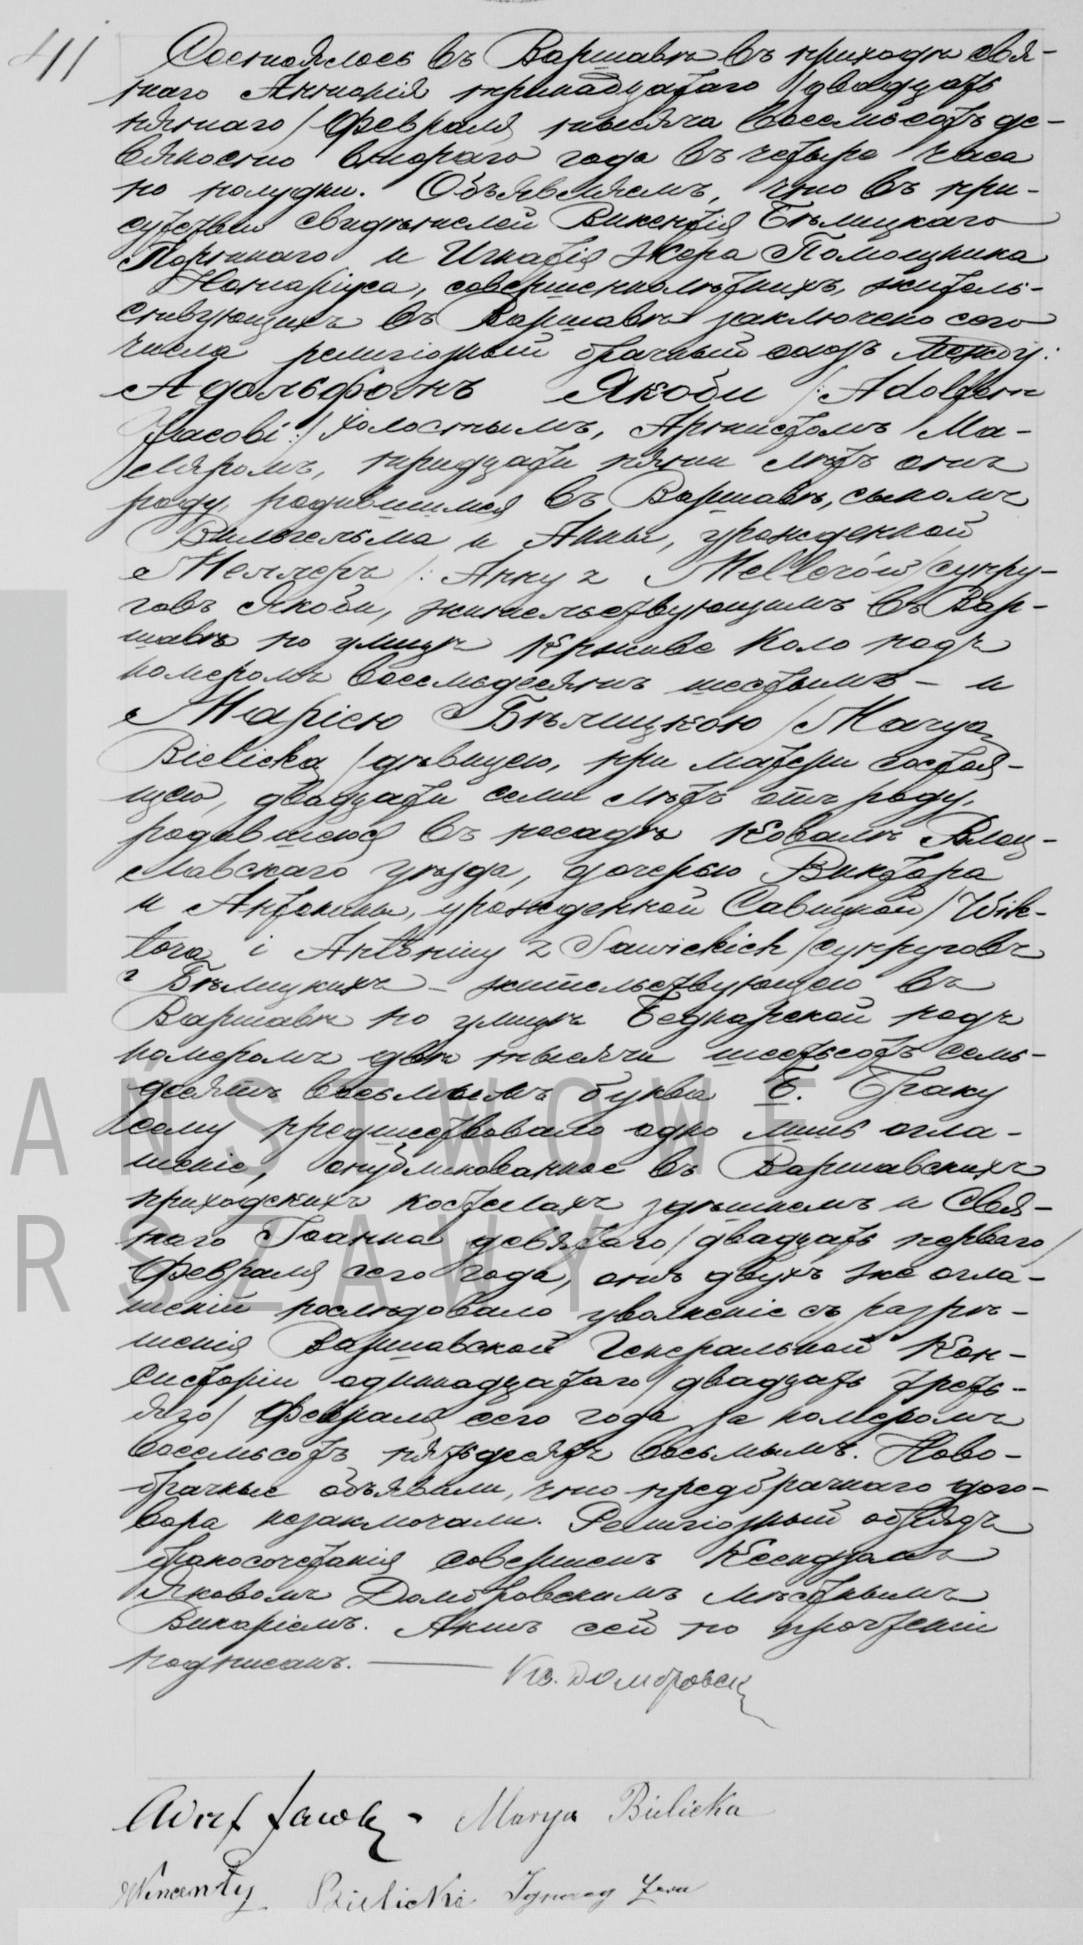 41
Состоялось въ Варшавѣ въ приходѣ свя-
таго Антонія тринадцатаго /двадцать
пятаго/ Февраля тысяча восемьсотъ де-
вяносто втораго года въ четыре часа
по полудни. Объявляемъ, что въ при-
сутствіи свидѣтелей Викентія Бѣлицкаго
и Игнатія Жера Помощника
Нотаріуса, совершеннолѣтнихъ, житель-
ствующихъ въ Варшавѣ заключено сего
числа религіозный брачный союзъ между:
Адольфомъ Якоби /:Adolfem
Jacobi:/ холостымъ, Артистомъ Ма-
ляромъ, тридцати пяти лѣтъ отъ
роду, родившимся въ Варшавѣ, сыномъ
Вильгельма и Анны, урожденной
Меллеръ /: Anny z Mellerów/ супру-
говъ Якоби, жительствующимъ въ Вар-
шавѣ по улицѣ Кршиве Коло подъ
номеромъ восемьдесятъ шестымъ – и
Маріею Бѣлицкою /Maryą
Bielicką/ дѣвицею, при матери состоя-
щею, двадцати семи лѣтъ отъ роду,
родившеюся въ посадѣ Ковалѣ Влоц-
лавскаго уѣзда, дочерью Виктора
и Антонины, урожденной Савицкой /Wik-
tora i Antoniny z Sawickich/ супруговъ
Бѣлицкихъ – жительствующею въ
Варшавѣ по улицѣ Беднарской подъ
номеромъ двѣ тысячи шестьсотъ семь-
десятъ восьмымъ буква Б. Браку
сему предшествовало одно лишь огла-
шеніе, опубликованное въ Варшавскихъ
приходскихъ костелахъ здѣшнемъ и Свя-
таго Іоанна девятаго /двадцать перваго/
Февраля сего года, отъ двухъ же огла-
шеній послѣдовало уволненіе съ разрѣ-
шенія Варшавской Генеральной Кон-
систоріи одинадцатаго /двадцать треть-
яго/ Февраля сего года за номеромъ
восемьсотъ пятьдесятъ восьмымъ. Ново-
брачные объявили, что предбрачнаго дого-
вора незаключали. Религіозный обрядъ
бракосочетанія совершенъ Ксендзомъ
Яковомъ Домбровскимъ мѣстнымъ
Викаріемъ. Актъ сей по прочтеніи
подписанъ. ——— Кс. Домбровск
Adolf Jacobi Marya Bielicka
Wincenty Bielicki Ignacy
AŃSTWOWE
RSZAWY